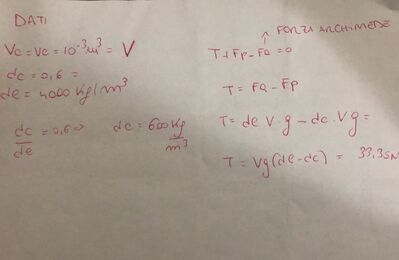 DATI
Vc = Ve = 10⁻³ m³ = V
dc = 0,6 =
de = 4000 Kg/m³
dc/de = 0,6 => dc = 600 Kg/m³
FORZA ARCHIMEDE
T + Fp - FA = 0
T = FA - Fp
T = de V · g - dc · V g =
T = Vg (de - dc) = 33,35N